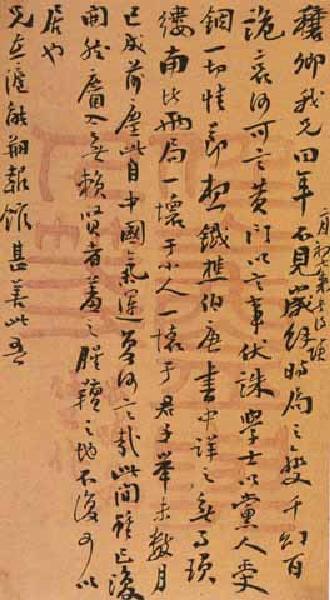 穰卿我兄四年不見歲經時局之變千幻百
詭哀何可言黃門以言事伏誅學士以黨人受
錮一切情節想鐵樵伯唐書中詳之無事瑣
縷南北兩局一壞于小人一壞于君子舉未數月
已成前塵此自中國氣運何言哉此間雖已復
開然麕入無賴賢者羞之腥羶之地不復可以
居也
兄在滬能翔報館甚善此吾